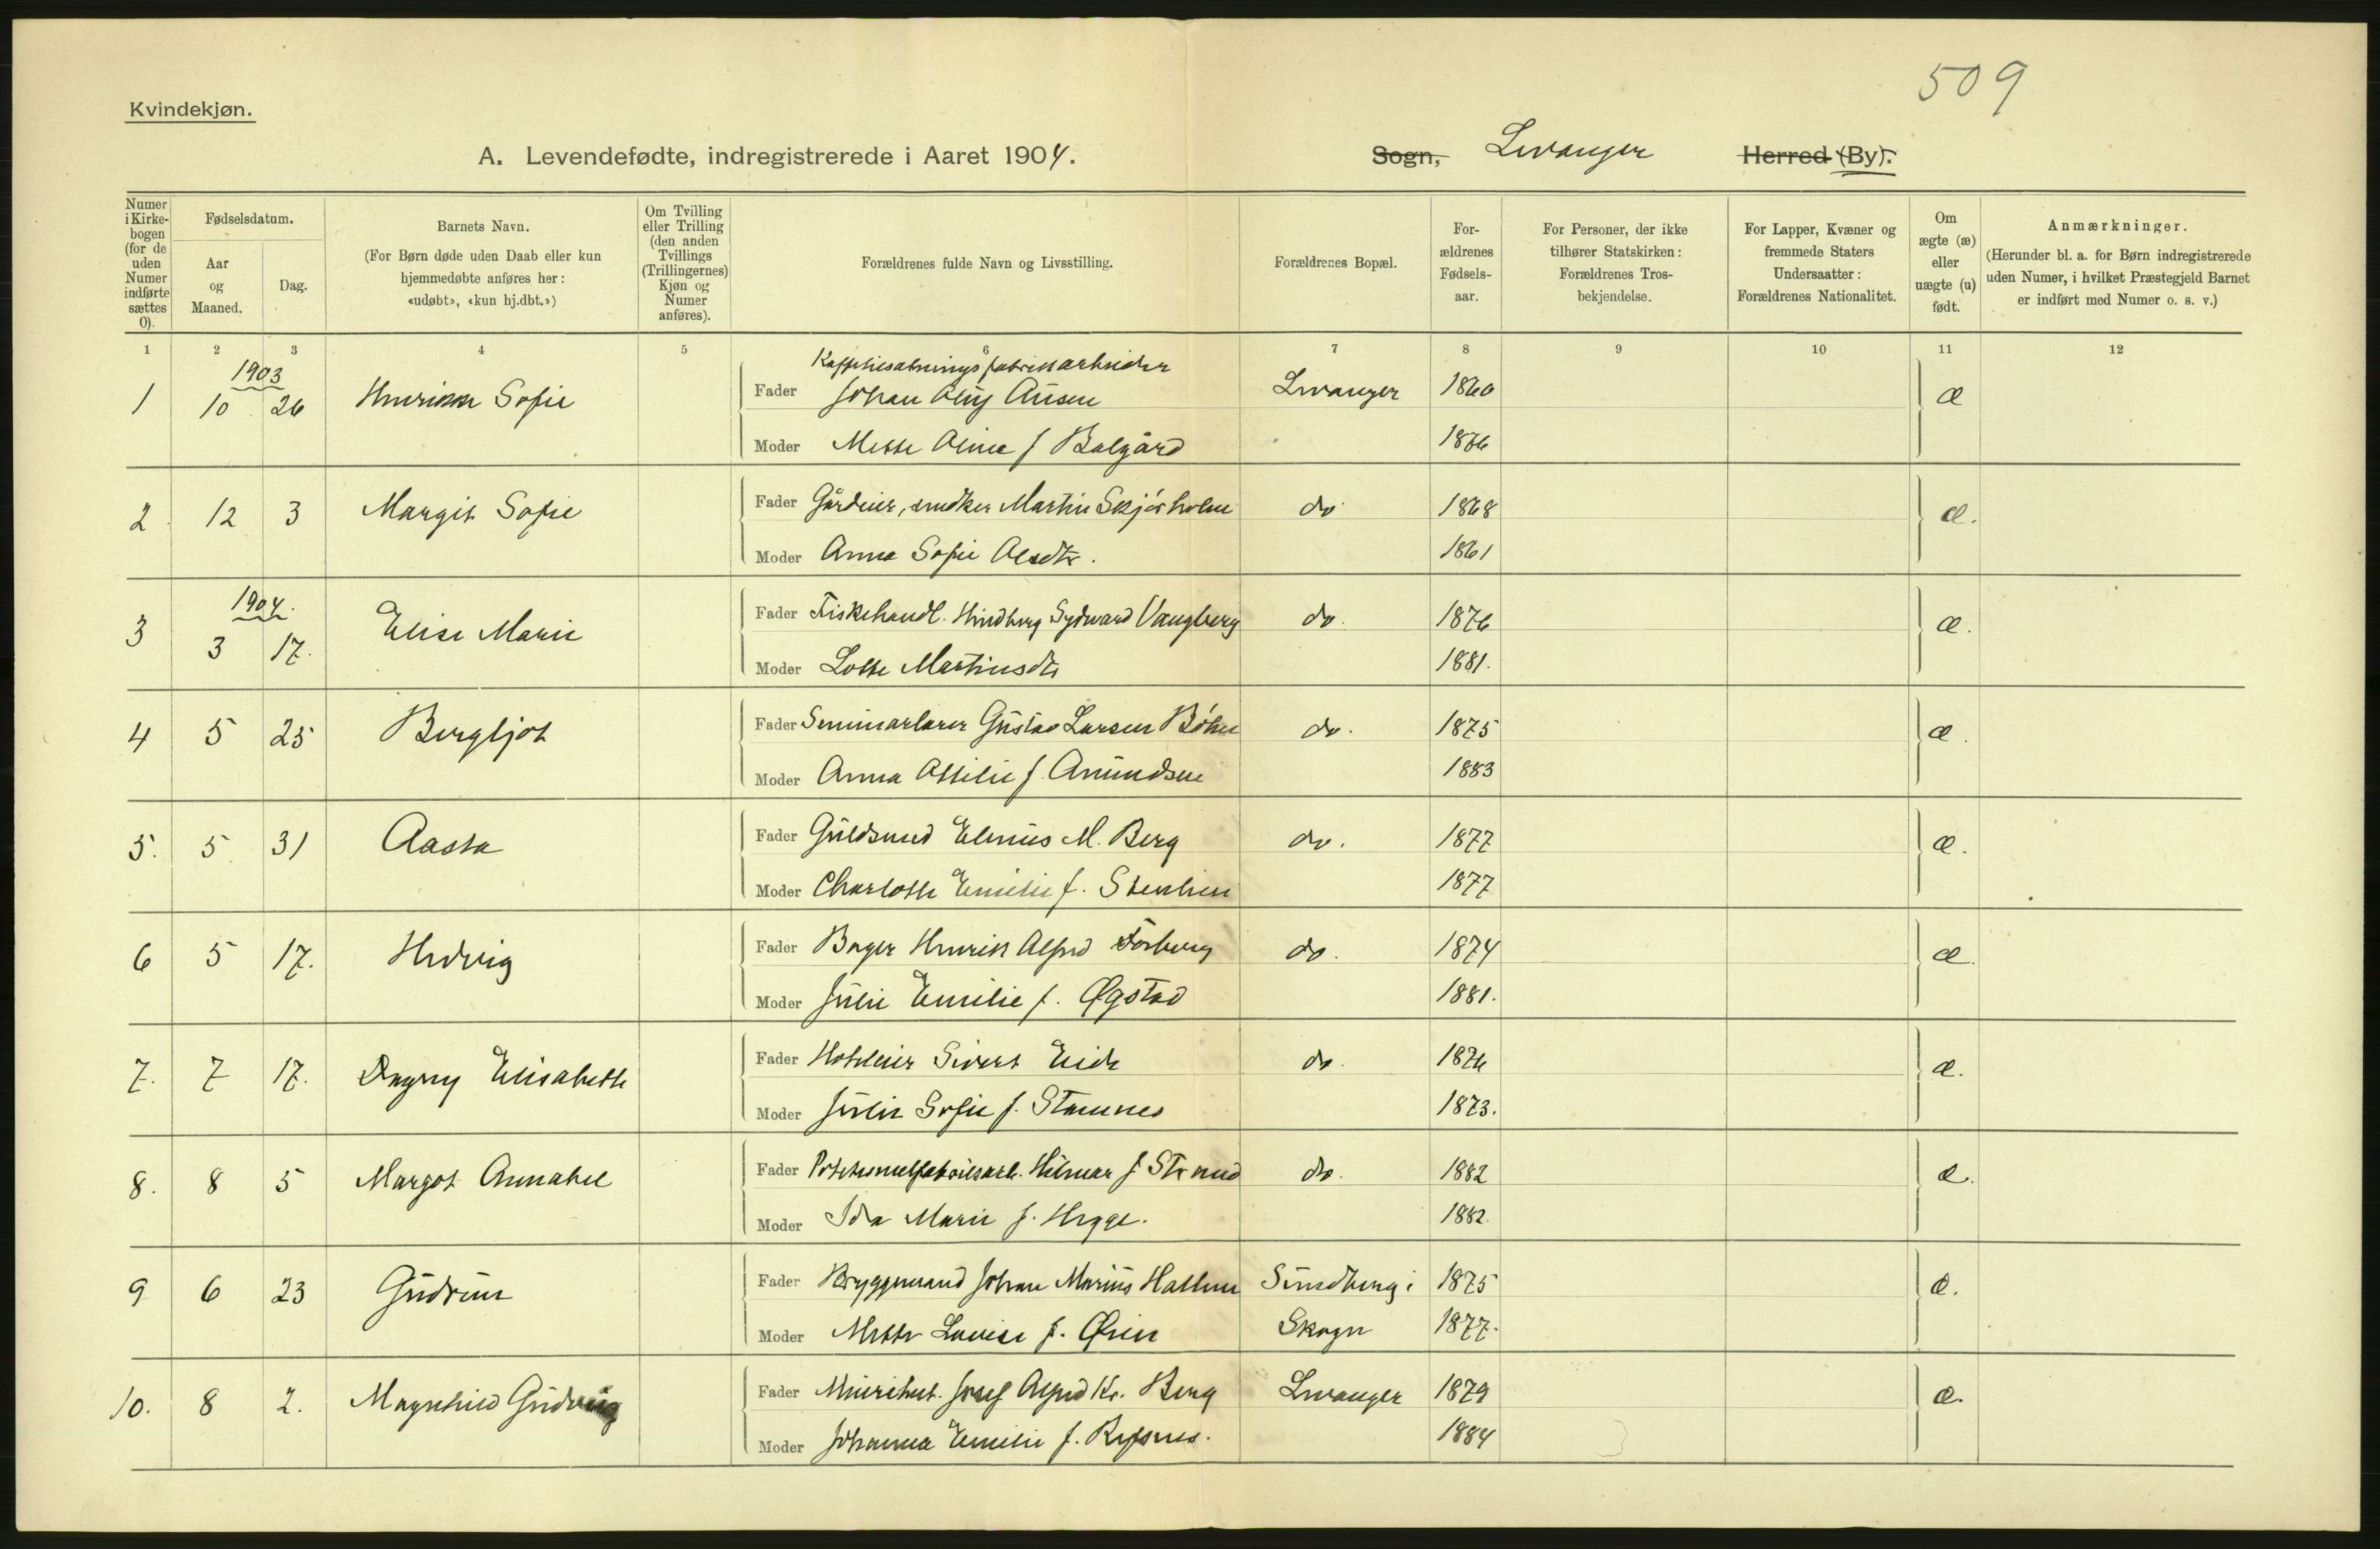 509
Kvindekjøn.
A. Levendefødte, indregistrerede i Aaret 1904.
Sogn, Levanger Herred (By).
Numer i Kirkebogen (for de uden Numer indførte sættes 0).
Fødselsdatum.
Aar og Maaned.
Dag.
Barnets Navn.
(For Børn døde uden Daab eller kun hjemmedøbte anføres her: «udøbt», «kun hj.dbt.»)
Om Tvilling eller Trilling (den anden Tvillings (Trillingernes) Kjøn og Numer anføres).
Forældrenes fulde Navn og Livsstilling.
Forældrenes Bopæl.
Forældrenes Fødselsaar.
For Personer, der ikke tilhører Statskirken: Forældrenes Trosbekjendelse.
For Lapper, Kvæner og fremmede Staters Undersaatter: Forældrenes Nationalitet.
Om ægte (æ) eller uægte (u) født.
Anmærkninger.
(Herunder bl. a. for Børn indregistrerede uden Numer, i hvilket Præstegjeld Barnet er indført med Numer o. s. v.)
1 2 3 4 5 6 7 8 9 10 11 12
1903
1 10 26 Henrikke Sofie Fader Johan Ausen Levanger 1860 æ
Moder Mette f Balgård 1866
2 12 3 Margit Sofie Fader Gårdeier, snedker Martin Skjørholm do 1868 æ.
Moder Anna Sofie Olsdtr. 1861
1904.
3 3 17. Elise Marie Fader Fiskehandl. Hindberg Sydvard Vangberg do. 1876 æ.
Moder Lotte Martinsdtr 1881.
4 5 25 Bergljot Fader Seminarlærer Gustav Larsen Bøhn do. 1875 æ.
Moder Anna Ottilie f. Amundsen 1883
5. 5 31 Aasta Fader Guldsmed Elenius M. Berg do. 1877 æ.
Moder Charlotte Emilie f. Stenhien 1877
6 5 17. Hedvig Fader Bager Henrik Alfred Forberg do. 1874 æ.
Moder Julie Emilie f. Øgstad 1881.
7. 7 17. Dagny Elisabeth Fader Hoteleier Sivert Eide do. 1876 æ.
Moder Julie Sofie f. Stamnes 1873.
8. 8 5 Margot Annabel Fader Potetesmelfabrikarb. Hilmar J Strand do. 1882 æ.
Moder Ida Marie f. Hegge. 1882.
9 6 23 Gudrun Fader Bryggemand Johan Marius Hallem Sundberg i 1875 æ.
Moder Mette Lovise f. Ørin Skogn 1877.
10. 8 2. Magnhild Gudveig Fader Josef Alfred Kr. Berg Levanger 1879 æ.
Moder Johanna Emilie f. Refsnes. 1884